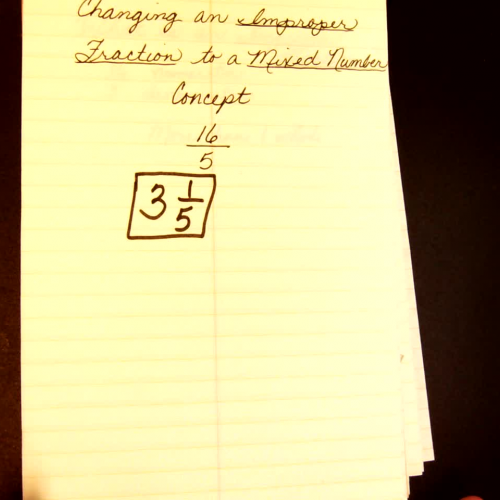 Changing an Improper
Fraction to a Mixed Number
Concept
16
5
3 1/5